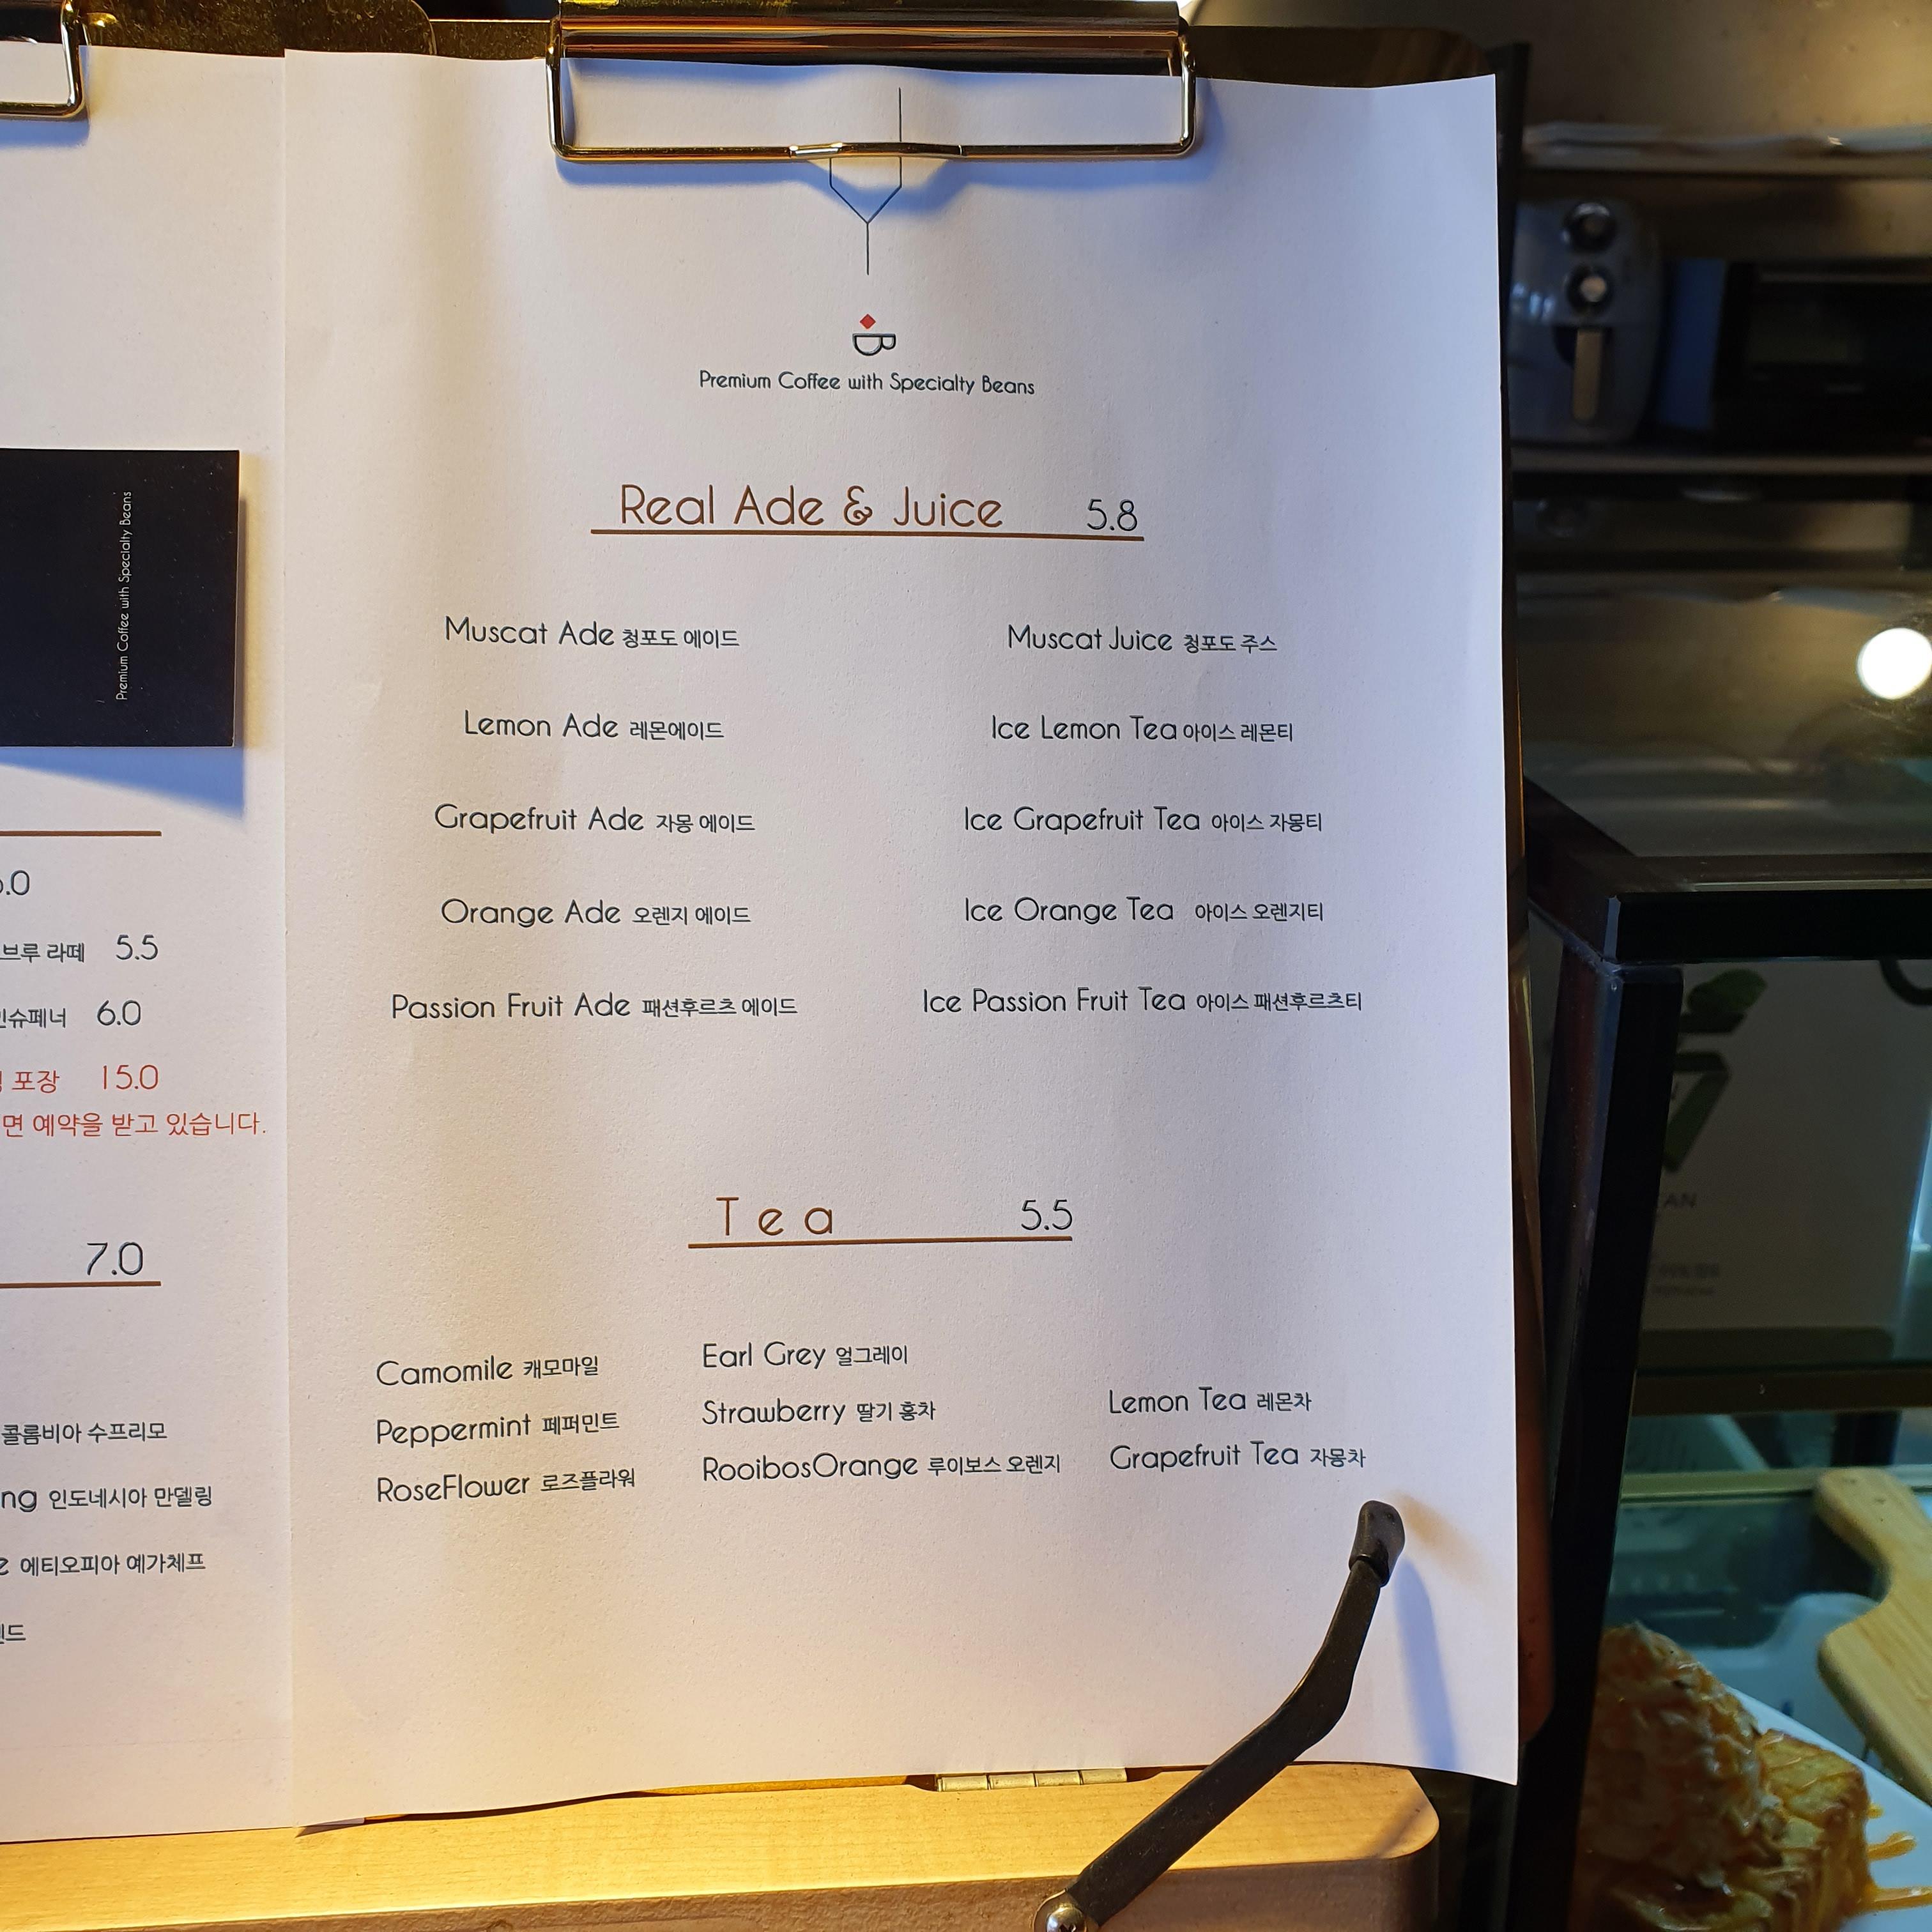 Premium Coffee with Specialty Beans
Real Ade & Juice 5.8
Muscat Ade 청포도 에이드
Muscat Juice 청포도 주스
Lemon Ade 레몬에이드
Ice Lemon Tea 아이스 레몬티
Grapefruit Ade 자몽 에이드
Ice Grapefruit Tea 아이스 자몽티
Orange Ade 오렌지 에이드
Ice Orange Tea 아이스 오렌지티
Passion Fruit Ade 패션후르츠 에이드
Ice Passion Fruit Tea 아이스 패션후르츠티
Tea 5.5
Camomile 캐모마일
Peppermint 페퍼민트
RoseFlower 로즈플라워
Earl Grey 얼그레이
Strawberry 딸기 홍차
RooibosOrange 루이보스 오렌지
Lemon Tea 레몬차
Grapefruit Tea 자몽차
Premium Coffee with Specialty Beans
.0
브루 라떼 5.5
슈페너 6.0
포장 15.0
면 예약을 받고 있습니다.
7.0
콜롬비아 수프리모
ng 인도네시아 만델링
e 에티오피아 예가체프
드